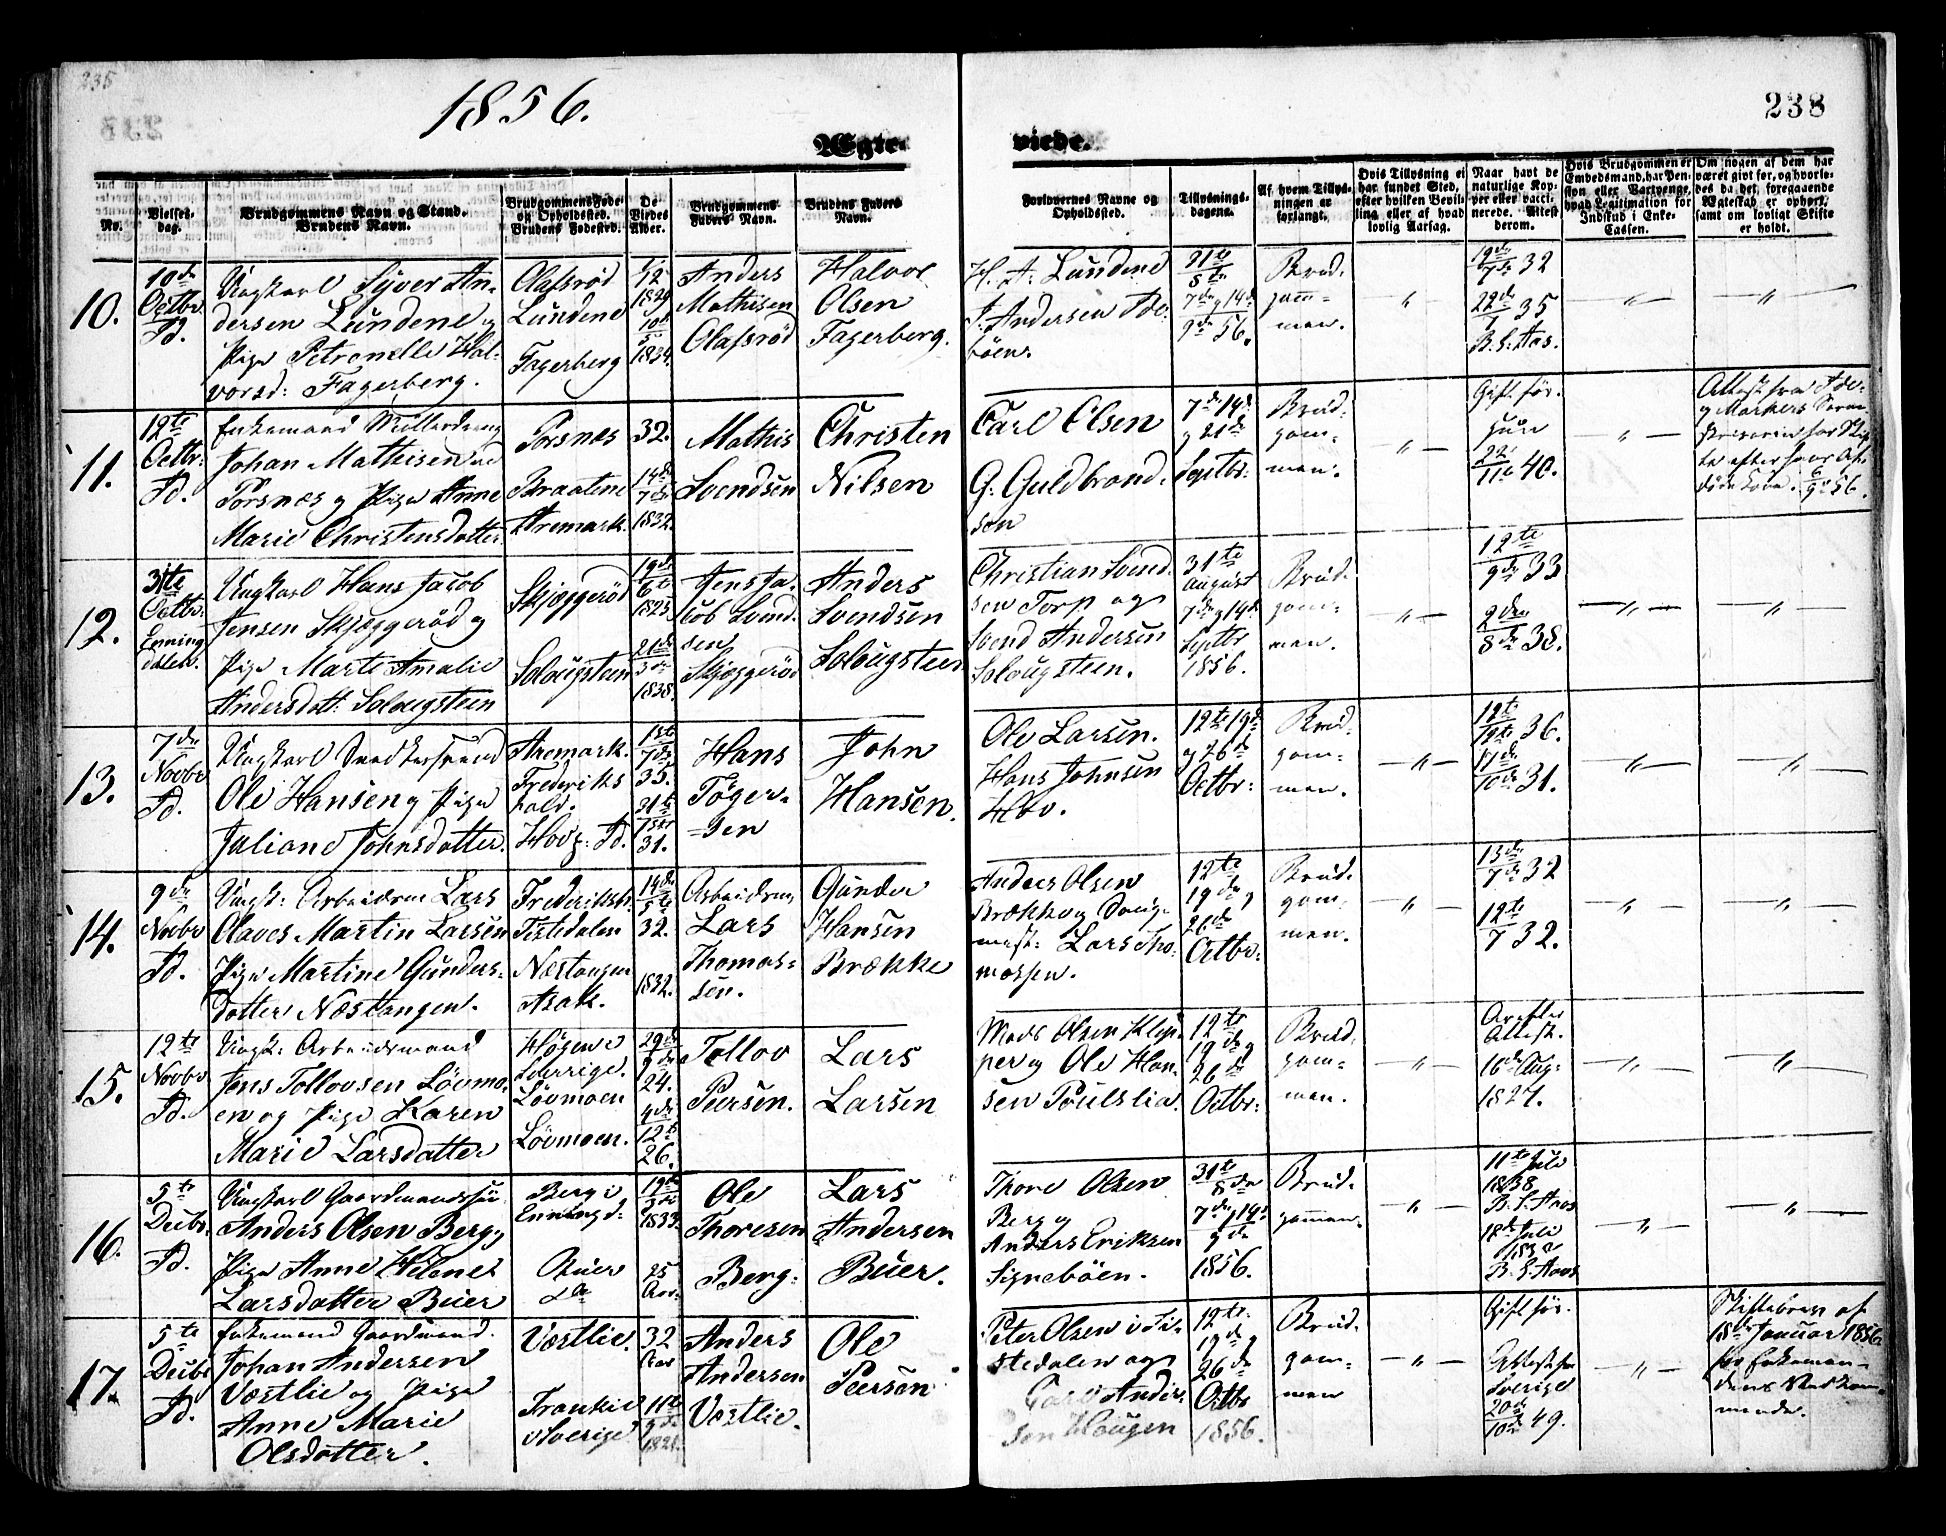 235
1856.
238
Ægte-
viede.
No.
Vielses-
dag.
Brudgommens Navn og Stand.
Brudens Navn.
Brudgommens Føde-
og Opholdssted.
Brudens Fødested.
De
Viedes
Alder.
Brudgommens
Faders Navn.
Brudens Faders
Navn.
Forlovernes Navne og
Opholdssted.
Tillysnings-
dagene.
Af hvem Tillys-
ningen er
forlangt.
Hvis Tillysning ei
har fundet Sted,
efter hvilken Bevil-
ling eller af hvad
lovlig Aarsag.
Naar havt de
naturlige Kop-
per eller vacci-
nerede. Attest
derom.
Hvis Brudgommen er
Embedsmand, har Pen-
sion eller Vartpenge,
hvad Legitimation for
Indskud i Enke-
Cassen.
Om nogen af dem har
været givt før, og hvorle-
des da det foregaaende
Ægteskab er ophørt,
samt om lovligt Skifte
er holdt.
10.
10de
Octbr
Id.
Ungkarl Syver An-
dersen Lundene og
Pige Petronelle Hal-
vorsd: Fagerberg.
Olafsrød
Lundene
Fagerberg
1829
10de
5
1834.
Anders
Mathisen
Olafsrød
Halvor
Olsen
Fagerberg.
H. A. Lundene
J. Andersen
bøen.
31te
8de
7de og 14de
9de 56.
Brud-
gom-
men.
"
19de
7de 32
22de
1 35
B. S. Aas.
"
"
11.
12te
Octbr.
Id.
Enkemand Møllerdreng
Johan Mathisen
Torsnæs og Pige Anne
Marie Christensdatter
Torsnæs
Braatene
Aremark.
32.
14de
7de
1832.
Mathis
Svendsen
Christen
Nilsen
Carl Olsen
G. Guldbrand-
sen
7de 14de
og 21de
Septbr:
Brud-
gom-
men.
"
Gift før.
Hun
22de
11te 40.
"
Attest fra
og Markers Soren-
skriveren for Skif-
te efter hans Af-
døde Kone. 6/9 56.
12.
31te
Octbr.
Enning-
dalen.
Ungkarl Hans Jacob
Jensen Skjæggerød og
Pige Marte Amalie
Andersdatt: Solougsteen
Skjæggerød
Solougsteen
19de
6te
1823
21de
3de
1838.
Jens Ja-
cob Svend-
sen
Skjæggerød
Anders
Svendsen
Solougsteen
Christian Svend-
sen Torp og
Svend Andersen
Solougsteen.
31te
August
7de og 14de
Septbr
1856.
Brud-
gom-
men.
"
12te
9de 33
2den
8de 38.
"
"
13.
7de
Novbr
Id.
Ungkarl Snedkersvend
Ole Hansen og Pige
Juliane Johnsdatter.
Aremark.
Frederiks
hald.
Hov p: Id.
1ste
7de
35.
21te
1ste
31.
Hans
Tøger-
sen
John
Hansen.
Ole Larsen.
Hans Johnsen
Hov.
12te 19de
og 26de
Octbr:
Brud-
gom-
men.
"
12te
12te 36.
11de
10de 31.
"
"
14.
9de
Novbr
Id.
Ungk: Arbeidsm Lars
Olaves Martin Larsen
Pige Martine Gunders-
datter Næstangen.
Frederiksh.
Tistedalen
Næstangen
Asak.
14de
5te
32.
1832.
Arbeidsm.
Lars
Thomas-
sen.
Gunder
Hansen
Brække
Anders Olsen
Brække og Saug-
mest: Lars Tho-
massen.
12te
19de og
26de
Octbr
Brud-
gom-
men.
"
13de
7de 32
12te
7 32.
"
"
15.
12te
Novbr
Id.
Ungk: Arbeidsmand
Jens Tollovsen Løvmo-
en og Pige Karen
Marie Larsdatter
Høgene
Sverrige.
Løvmoen
Løvmoen.
29de
24.
4de
12te
26.
Tollov
Peersen.
Lars
Larsen
Mads Olsen Klep-
per og Ole Han-
sen Poulslia.
12te
19de og
26de
Octbr:
Brud-
gom-
men.
"
Attest.
16de Aug.
1827.
"
"
16.
5te
Decbr.
Id.
Ungkarl Gaardmandssøn
Anders Olsen Berg og
Pige Anne Helene
Larsdatter Buer
Berg i
Enningd:
Buer
do
19de
1833.
25
Aar.
Ole
Thoresen
Berg.
Lars
Andersen
Buer.
Thore Olsen
Berg og
Anders Eriksen
Signebøen.
31te
8de
7de og 14de
9de
1856.
Brud-
gommen.
"
11te Juli
1838
B. S. Aas
18de Juli
B. S. Aas
"
"
17.
5te
Decbr
Id.
Enkemand Gaardmand.
Johan Andersen
Væstlie og Pige
Anne Marie
Olsdatter.
Væstlie.
Trankie
Sverige
32
Aar
11te
9de
1821.
Anders
Andersen
Væstlie.
Ole
Peersen
Peter Olsen i Ti-
stedalen og
Carl Ander-
sen Hougen
12te.
19de og
26de
Octbr
1856.
Brud-
gom-
men
"
Gift før.
Attest fra
Sverige
20de
10de 49.
"
Skiftebrev af
18de Januar 1856
for Enkeman-
dens Vedkom-
mende.